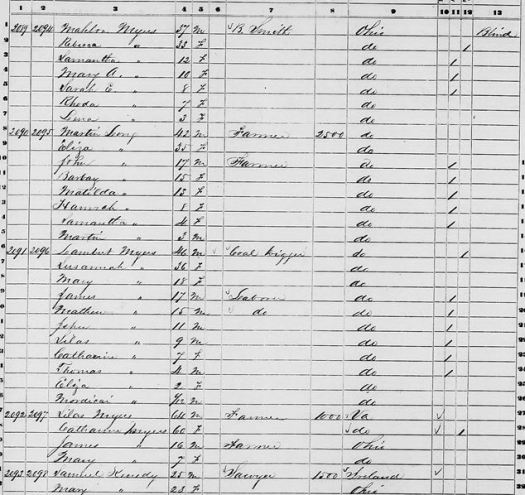 1 2 3 4 5 6 7 8 9 10 11 12 13
2019 2094 Mahlon Myers 37 M B. Smith Ohio Blind
Rebeca " 33 F do 1
Samantha " 12 F do 1
Mary A. " 10 F do 1
Sarah E " 8 F do 1
Rhoda " 7 F do
" 3 F do
2090 2095 Martin Long 42 M Farmer 2500 do
Eliza " 35 F do
John " 17 M Farmer do 1
" 15 F do 1
Matilda " 13 F do 1
Hannah " 8 F do 1
Samantha " 4 F do 1
Martin " 3 M do
2091 2096 Lambert Myers 46 M Coal Digger do 1
Susannah " 36 F do
Mary " 18 F do
James " 17 M Labore do 1
Mathew " 15 M do do 1
John " 11 M do 1
Silas " 9 M do 1
Catharine " 7 F do 1
Thomas " 4 M do 1
Eliza " 2 F do
Mordicai " M do
2092 2097 Silas Myers 64 M Farmer 1000 Va
Catharine Myers 60 F do 1
James " 16 M Farmer Ohio
Mary " 7 F do
2093 2098 Samuel 25 M Sawyer 1500 Ireland
Mary " 23 F Ohio